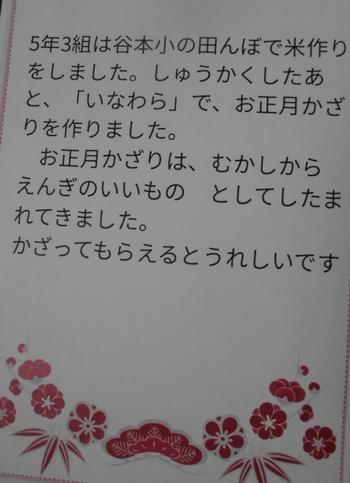 5年3組は谷本小の田んぼで米作り
をしました。しゅうかくしたあ
と、「いなわら」で、お正月かざ
りを作りました。
　お正月かざりは、むかしから
えんぎのいいもの　としてしたま
れてきました。
かざってもらえるとうれしいです